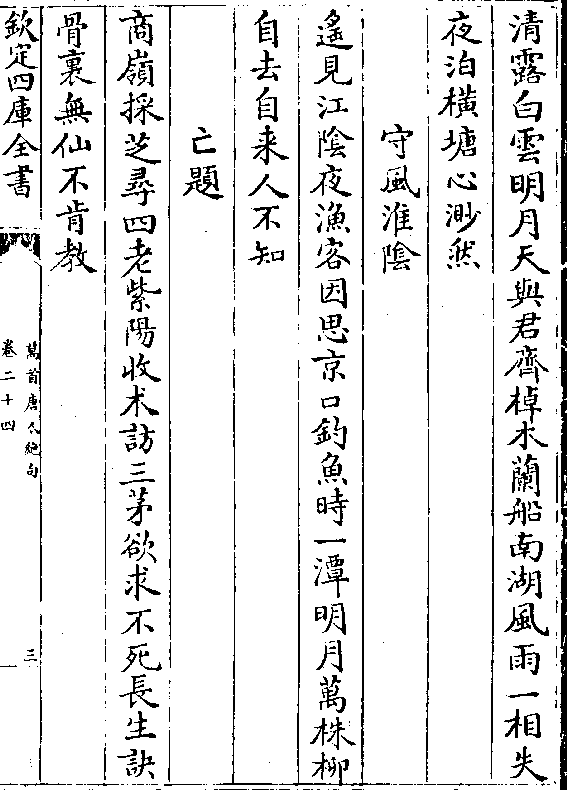 清露白雲明月天與君齊棹木蘭船南湖風雨一相失
夜泊橫塘心渺然
守風淮陰
遙見江陰夜漁客因思京口釣魚時一潭明月萬株柳
自去自来人不知
亡題
商嶺採芝尋四老紫陽收术訪三茅欲求不死長生訣
骨裏無仙不肯教
欽定四庫全書
萬首唐人絶句
卷二十四
三